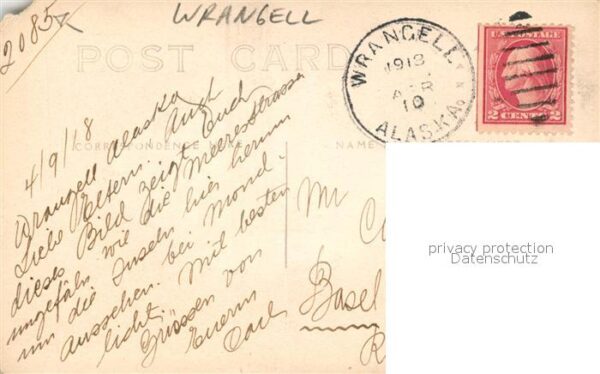 2085
WRANGELL
POST CARD
WRANGELL
1918
APR
10
ALASKA.
U.S. POSTAGE
2 CENTS 2
CORRESPONDENCE
NAME
4/9/18
Wrangell Alaska
Liebe Eltern.
dieses Bild zeigt Euch
ungefähr wie die Meeresstrassen
um die Inseln hier herum
aussehen bei Mond-
licht. Mit besten
Grüssen von
Euerm
Carl
Mr
Basel
privacy protection
Datenschutz